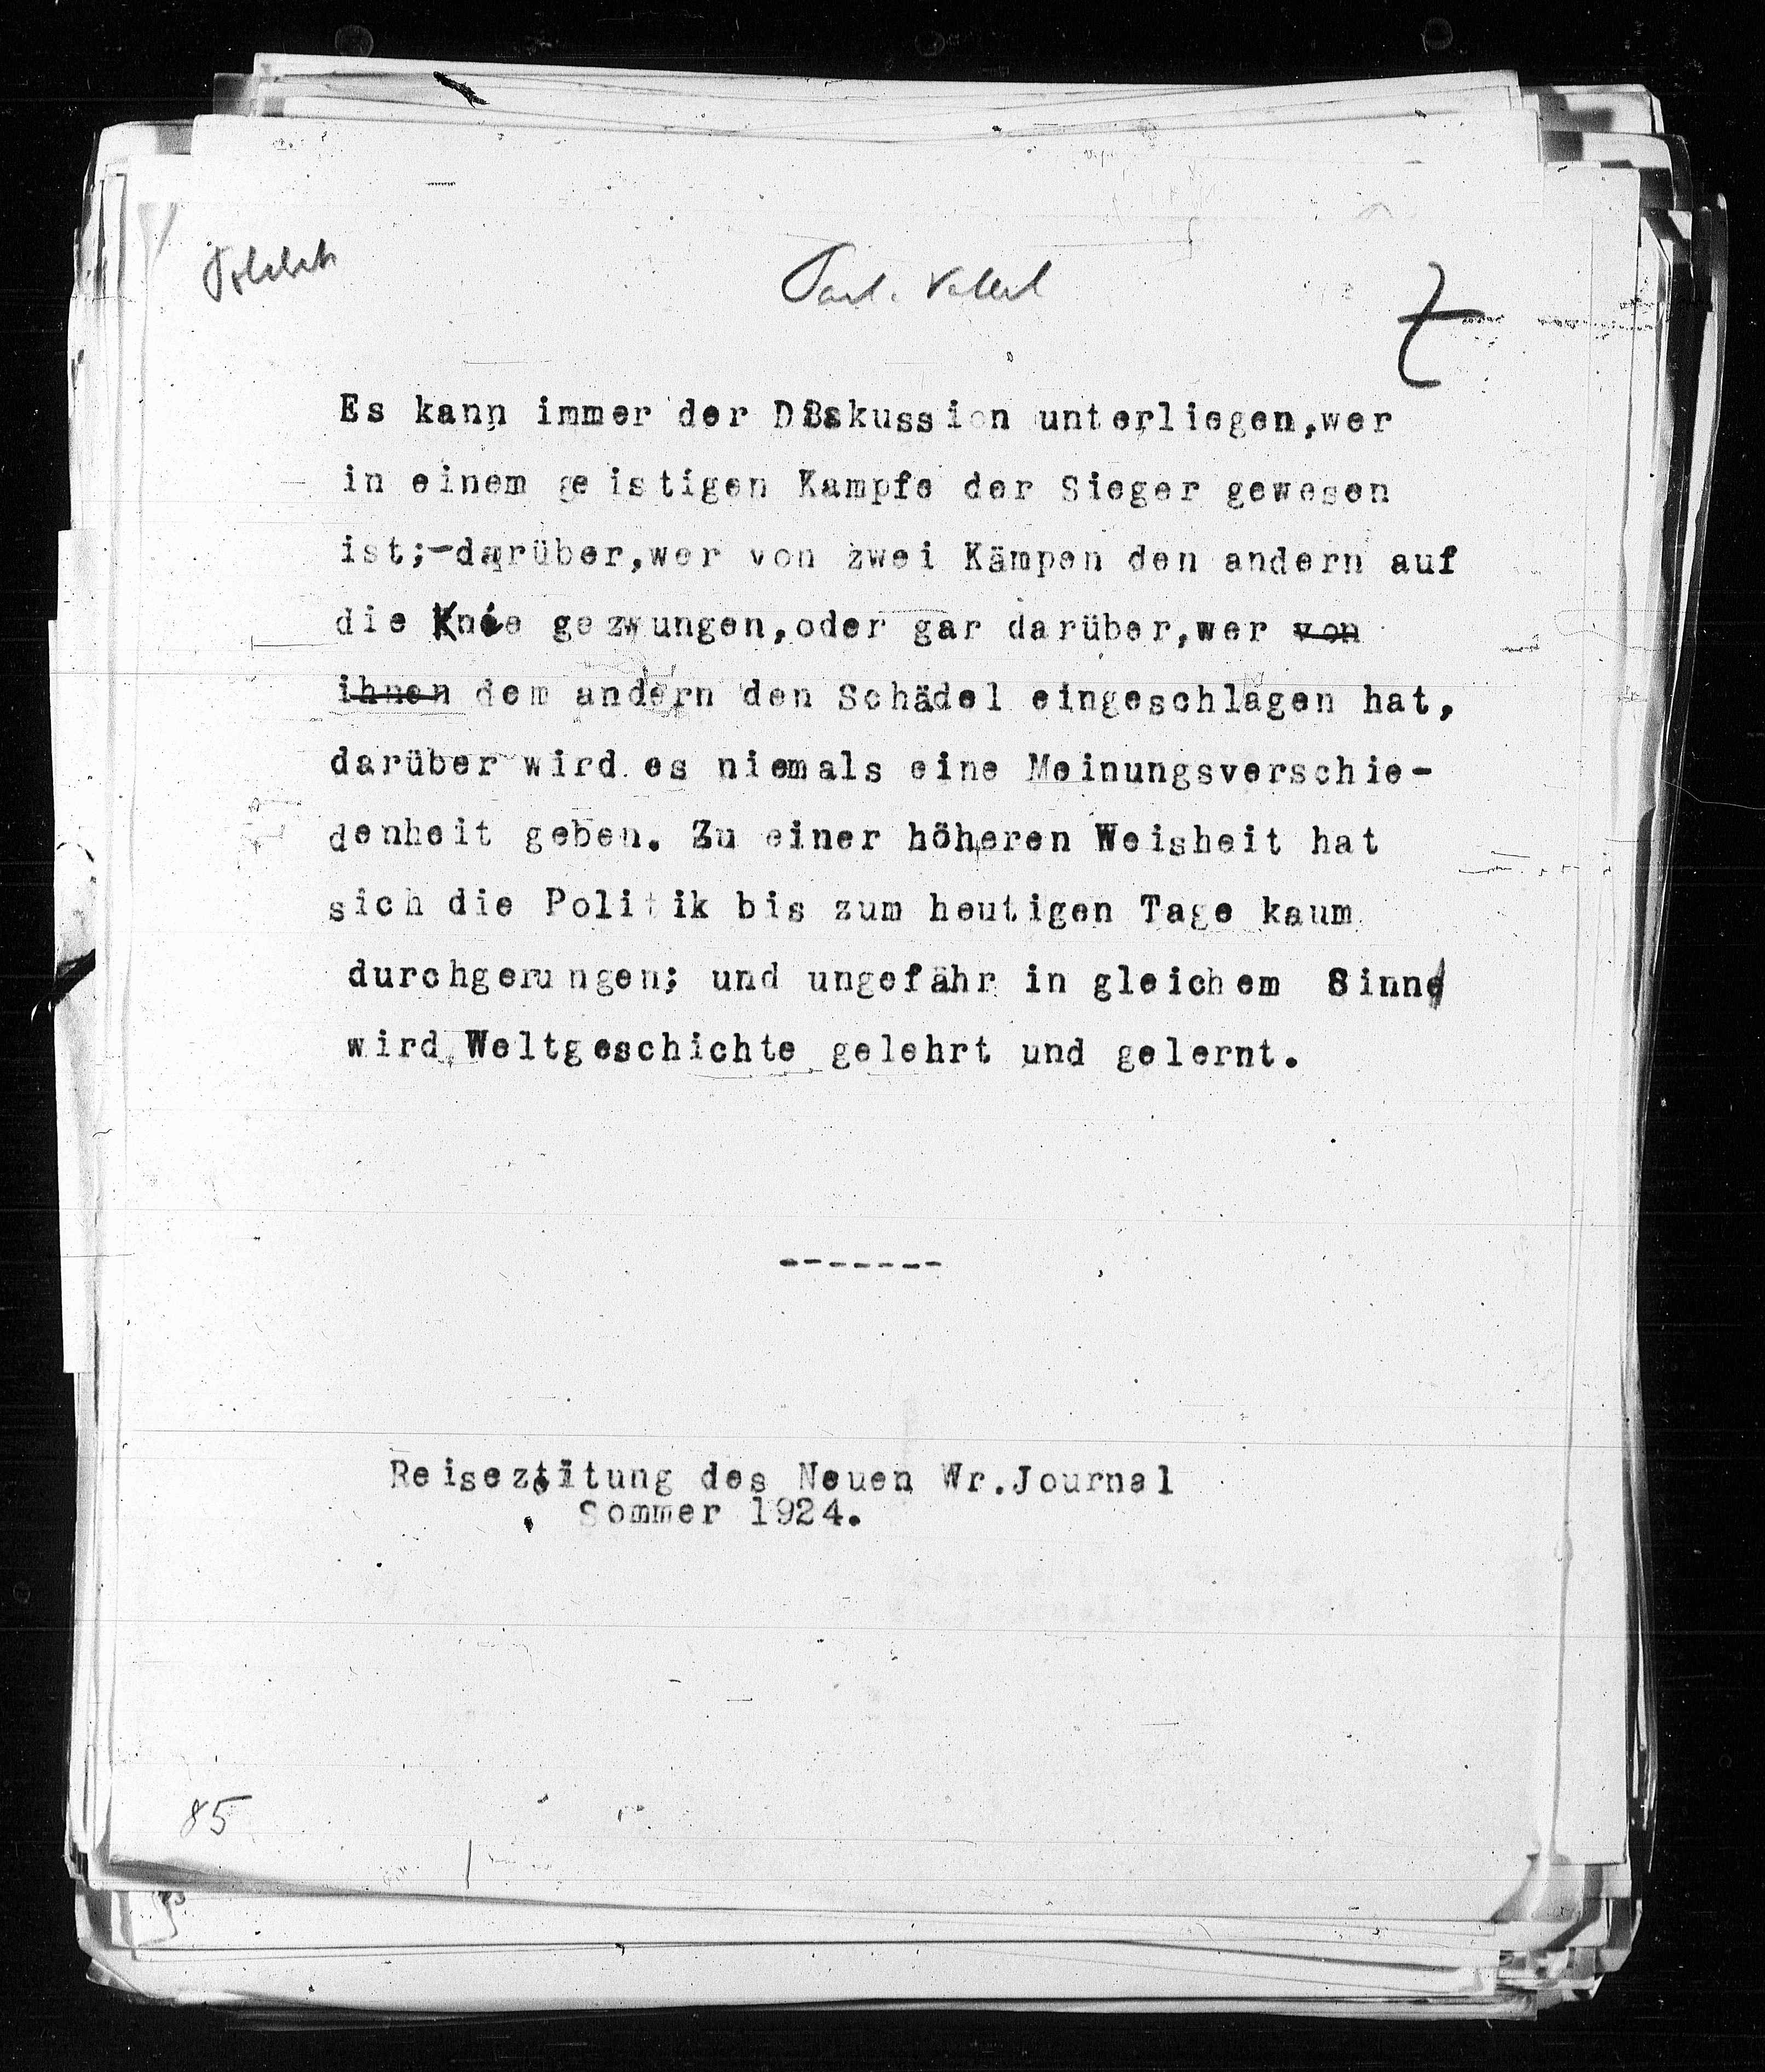 Es kann immer der Diskussion unterliegen,wer
in einem geistigen Kampfe der Sieger gewesen
ist;-darüber,wer von zwei Kämpen den andern auf
die Knie gezwungen,oder gar darüber,wer von
ihnen dem andern den Schädel eingeschlagen hat,
darüber wird es niemals eine Meinungsverschie-
denheit geben. Zu einer höheren Weisheit hat
sich die Politik bis zum heutigen Tage kaum
durchgerungen; und ungefähr in gleichem Sinne
wird Weltgeschichte gelehrt und gelernt.
-------
Reisezeitung des Neuen Wr.Journal
Sommer 1924.
85